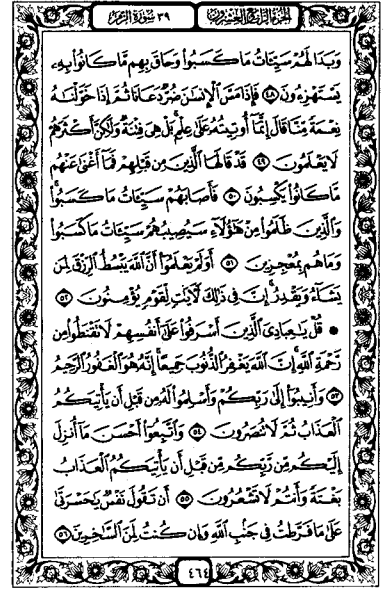 الجزء الرابع والعشرون
٣٩ سورة الزمر
وَبَدَا لَهُمْ سَيِّئَاتُ مَا كَسَبُوا وَحَاقَ بِهِم مَّا كَانُوا بِهِ
يَسْتَهْزِءُونَ ٤٨ فَإِذَا مَسَّ الْإِنسَانَ ضُرٌّ دَعَانَا ثُمَّ إِذَا خَوَّلْنَاهُ
نِعْمَةً مِّنَّا قَالَ إِنَّمَا أُوتِيتُهُ عَلَىٰ عِلْمٍ بَلْ هِيَ فِتْنَةٌ وَلَٰكِنَّ أَكْثَرَهُمْ
لَا يَعْلَمُونَ ٤٩ قَدْ قَالَهَا الَّذِينَ مِن قَبْلِهِمْ فَمَا أَغْنَىٰ عَنْهُم
مَّا كَانُوا يَكْسِبُونَ ٥٠ فَأَصَابَهُمْ سَيِّئَاتُ مَا كَسَبُوا
وَالَّذِينَ ظَلَمُوا مِنْ هَٰؤُلَاءِ سَيُصِيبُهُمْ سَيِّئَاتُ مَا كَسَبُوا
وَمَا هُم بِمُعْجِزِينَ ٥١ أَوَلَمْ يَعْلَمُوا أَنَّ اللَّهَ يَبْسُطُ الرِّزْقَ لِمَن
يَشَاءُ وَيَقْدِرُ إِنَّ فِي ذَٰلِكَ لَآيَاتٍ لِّقَوْمٍ يُؤْمِنُونَ ٥٢
قُلْ يَا عِبَادِيَ الَّذِينَ أَسْرَفُوا عَلَىٰ أَنفُسِهِمْ لَا تَقْنَطُوا مِن
رَّحْمَةِ اللَّهِ إِنَّ اللَّهَ يَغْفِرُ الذُّنُوبَ جَمِيعًا إِنَّهُ هُوَ الْغَفُورُ الرَّحِيمُ
٥٣ وَأَنِيبُوا إِلَىٰ رَبِّكُمْ وَأَسْلِمُوا لَهُ مِن قَبْلِ أَن يَأْتِيَكُمُ
الْعَذَابُ ثُمَّ لَا تُنصَرُونَ ٥٤ وَاتَّبِعُوا أَحْسَنَ مَا أُنزِلَ
إِلَيْكُم مِّن رَّبِّكُم مِّن قَبْلِ أَن يَأْتِيَكُمُ الْعَذَابُ
بَغْتَةً وَأَنتُمْ لَا تَشْعُرُونَ ٥٥ أَن تَقُولَ نَفْسٌ يَا حَسْرَتَىٰ
عَلَىٰ مَا فَرَّطتُ فِي جَنبِ اللَّهِ وَإِن كُنتُ لَمِنَ السَّاخِرِينَ ٥٦
٤٦٤